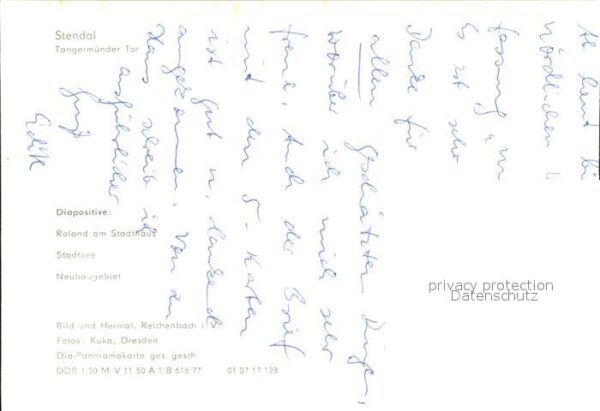 Stendal
Tangermünder Tor
Diapositive:
Roland am Stadthaus
Stadtsee
Neubaugebiet
Bild und Heimat, Reichenbach i. V.
Fotos: Kuka, Dresden
Dia-Panoramakarte ges. gesch.
DDR 1,50 M V 11 50 A 1/B 616/77 01 07 17 123
privacy protection
Datenschutz
Ab heut bi
nördlichen
fassung
Es ist sehr
Danke für
allen geschätzten Dinge,
worüber ich mich sehr
freue. Auch der Brief
mit den 5-Karten
ist gut u. dankend
angekommen. Von
Haus schreib ich
ausführlicher